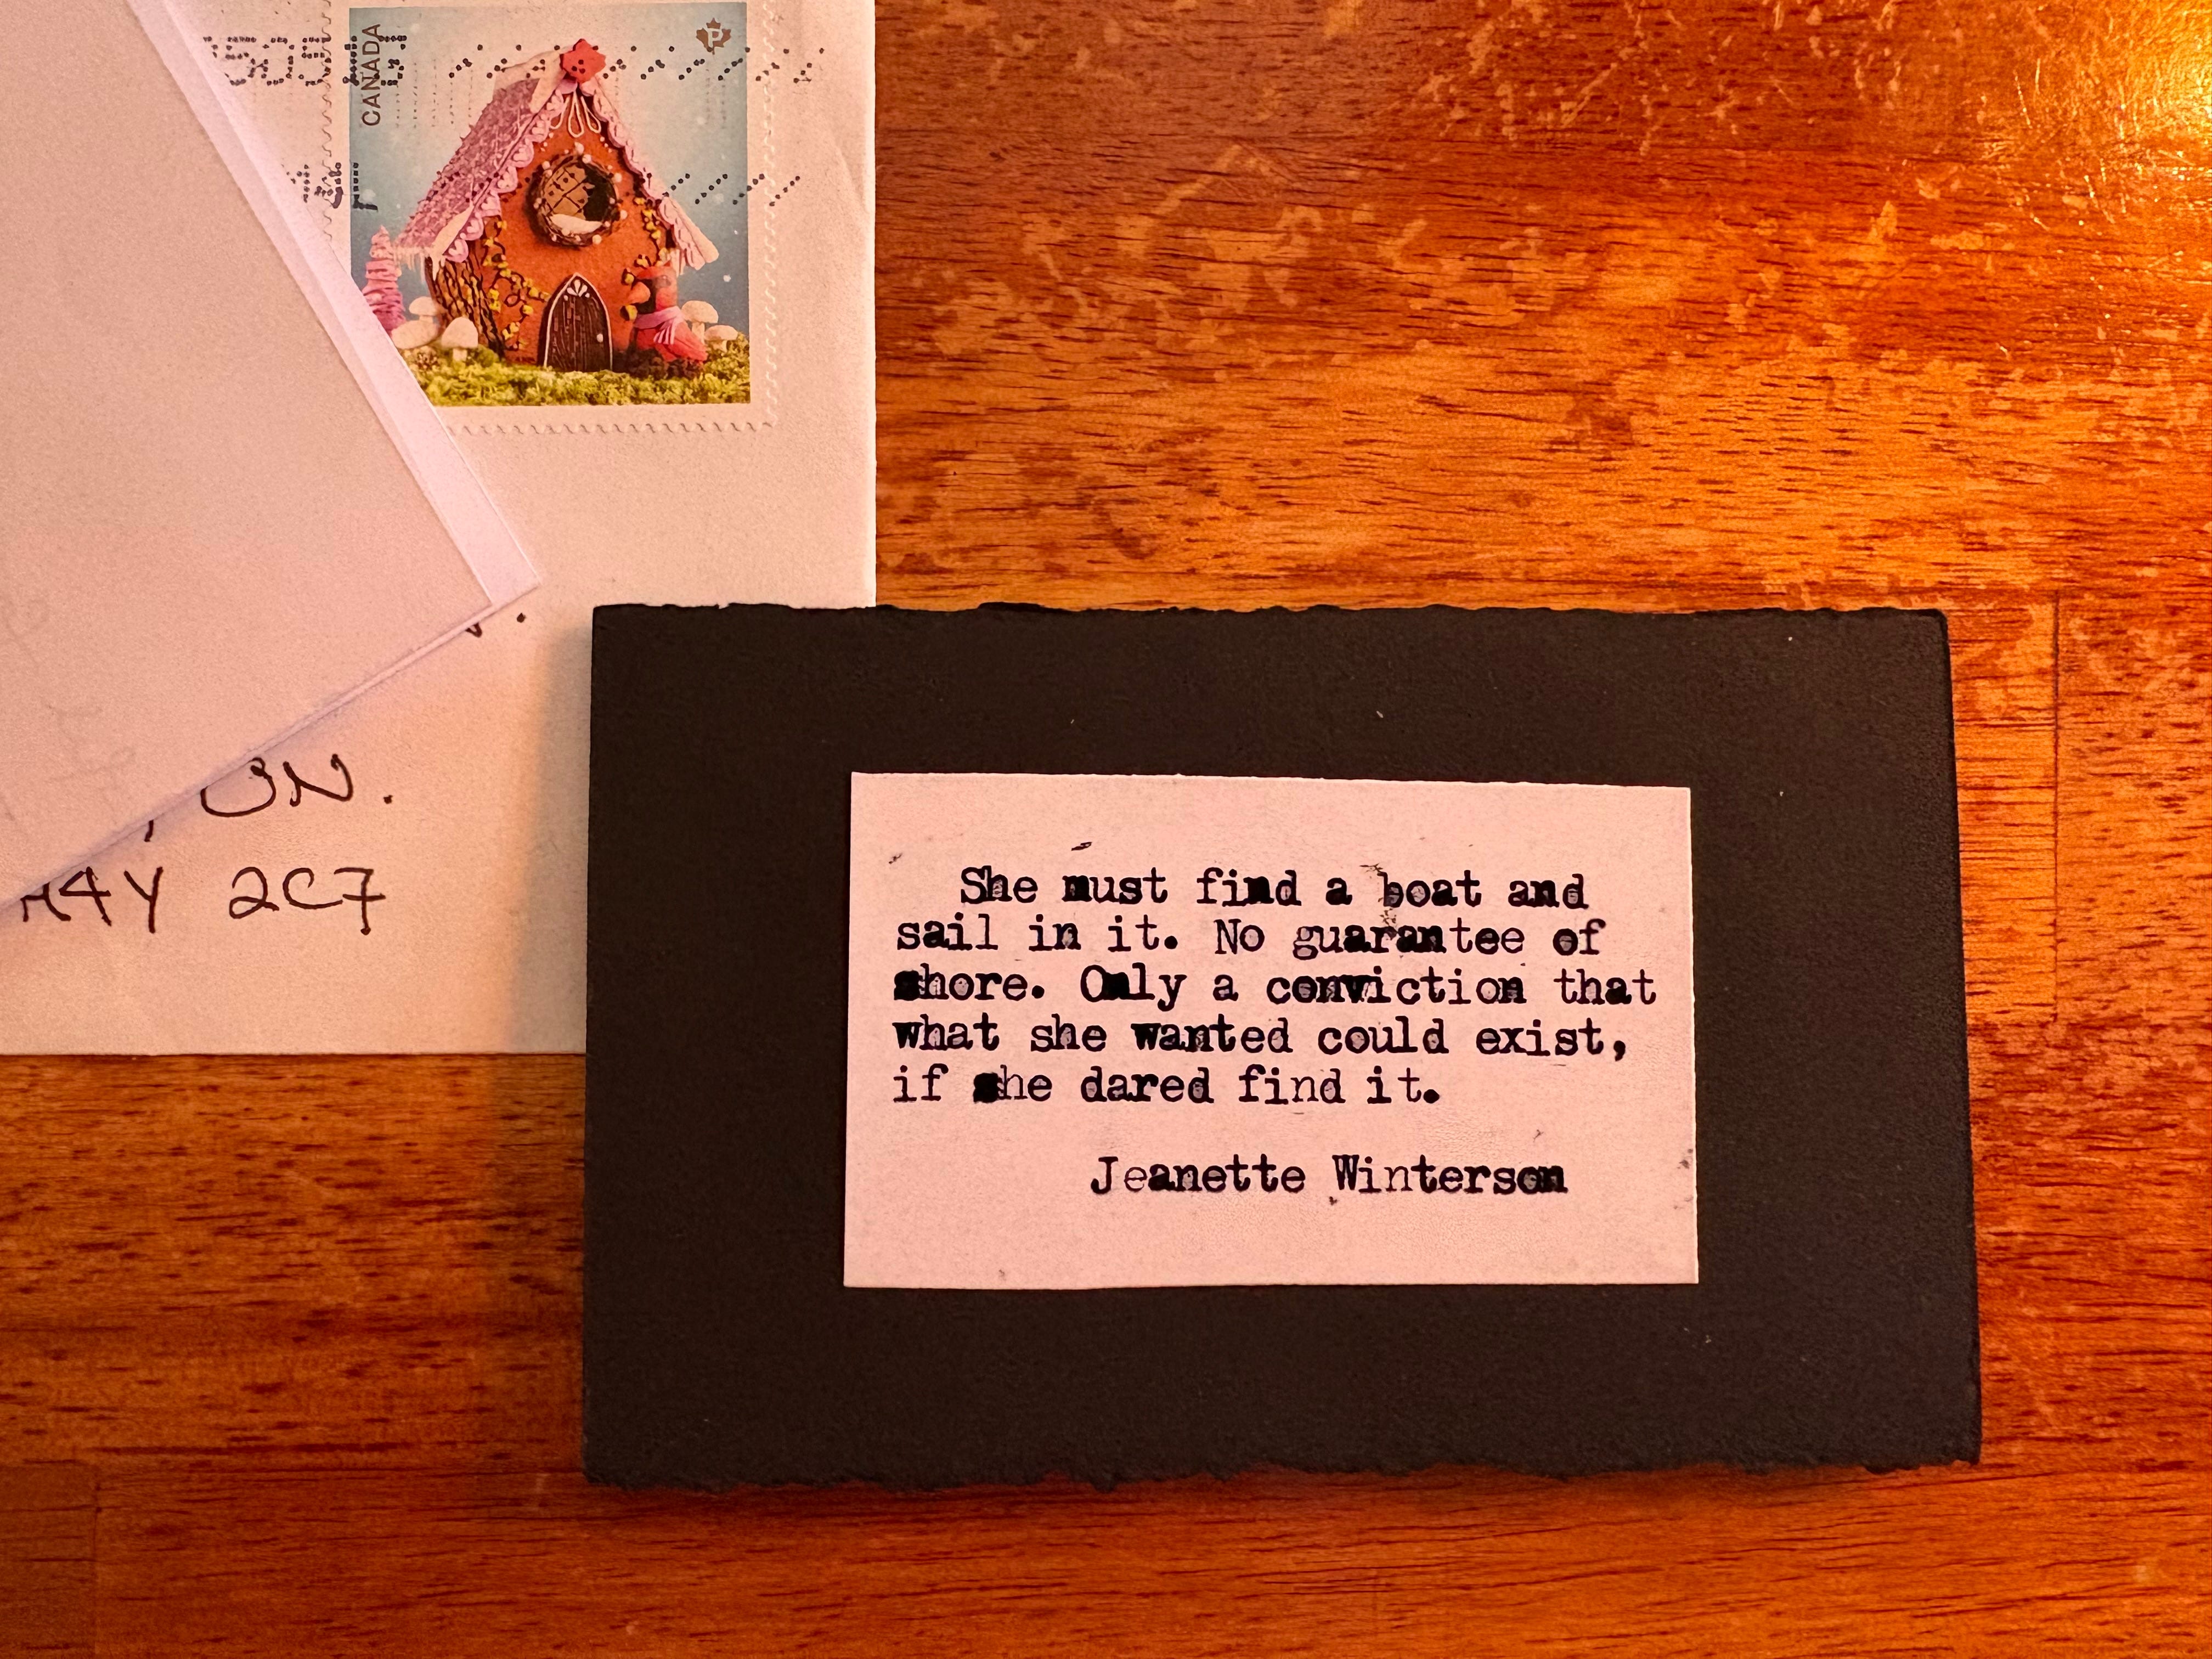 CANADA
P
ON.
M4Y 2C7
She must find a boat and
sail in it. No guarantee of
shore. Only a conviction that
what she wanted could exist,
if she dared find it.
Jeanette Winterson